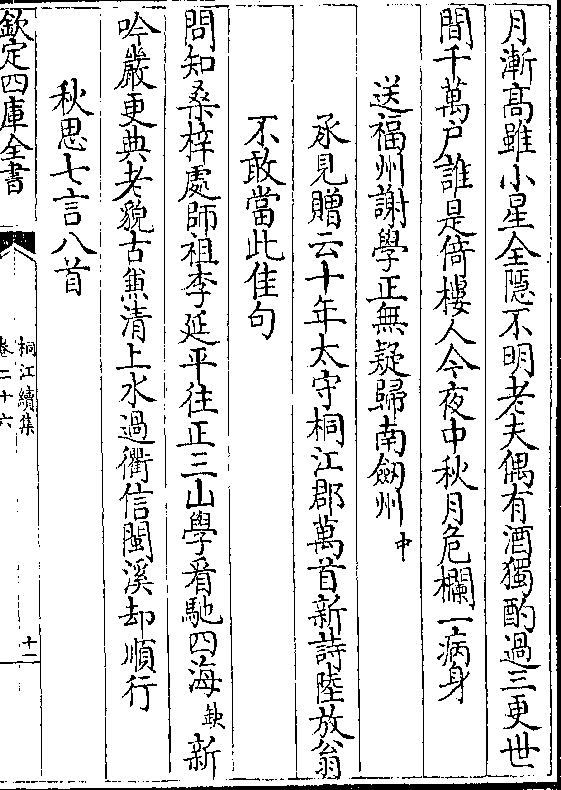 月漸髙雖小星全隱不明老夫偶有酒獨酌過三更世
間千萬户誰是倚樓人今夜中秋月危欄一病身
送福州謝學正無疑歸南劒州中
承見贈云十年太守桐江郡萬首新詩陸放翁
不敢當此佳句
問知桑梓處師祖李延平往正三山學看馳四海缺新
吟嚴更典老貌古兼清上水過衢信閩溪却順行
秋思七言八首
欽定四庫全書
桐江續集
卷二十六
十二